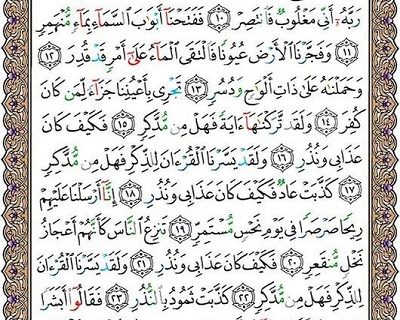 رَبَّهُۥٓ أَنِّي مَغْلُوبٌ فَٱنتَصِرْ ۝١٠ فَفَتَحْنَآ أَبْوَٰبَ ٱلسَّمَآءِ بِمَآءٍ مُّنْهَمِرٍ
۝١١ وَفَجَّرْنَا ٱلْأَرْضَ عُيُونًا فَٱلْتَقَى ٱلْمَآءُ عَلَىٰٓ أَمْرٍ قَدْ قُدِرَ ۝١٢
وَحَمَلْنَٰهُ عَلَىٰ ذَاتِ أَلْوَٰحٍ وَدُسُرٍ ۝١٣ تَجْرِي بِأَعْيُنِنَا جَزَآءً لِّمَن كَانَ
كُفِرَ ۝١٤ وَلَقَد تَّرَكْنَٰهَآ ءَايَةً فَهَلْ مِن مُّدَّكِرٍ ۝١٥ فَكَيْفَ كَانَ
عَذَابِي وَنُذُرِ ۝١٦ وَلَقَدْ يَسَّرْنَا ٱلْقُرْءَانَ لِلذِّكْرِ فَهَلْ مِن مُّدَّكِرٍ
۝١٧ كَذَّبَتْ عَادٌ فَكَيْفَ كَانَ عَذَابِي وَنُذُرِ ۝١٨ إِنَّآ أَرْسَلْنَا عَلَيْهِمْ
رِيحًا صَرْصَرًا فِي يَوْمِ نَحْسٍ مُّسْتَمِرٍّ ۝١٩ تَنزِعُ ٱلنَّاسَ كَأَنَّهُمْ أَعْجَازُ
نَخْلٍ مُّنقَعِرٍ ۝٢٠ فَكَيْفَ كَانَ عَذَابِي وَنُذُرِ ۝٢١ وَلَقَدْ يَسَّرْنَا ٱلْقُرْءَانَ
لِلذِّكْرِ فَهَلْ مِن مُّدَّكِرٍ ۝٢٢ كَذَّبَتْ ثَمُودُ بِٱلنُّذُرِ ۝٢٣ فَقَالُوٓا۟ أَبَشَرًا